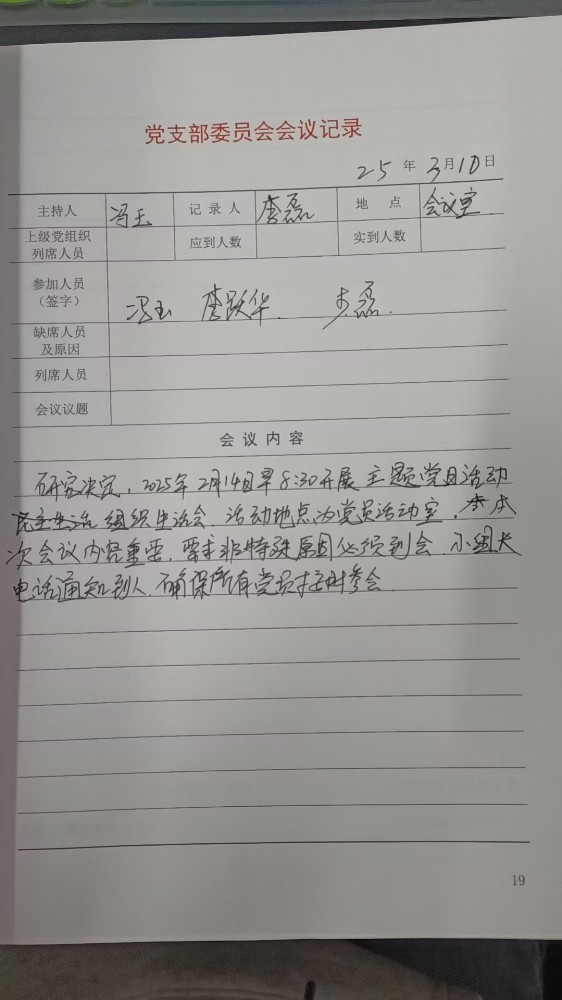 党支部委员会会议记录
25 年 3月10日
主持人 冯玉 记录人 李磊 地点 会议室
上级党组织列席人员 应到人数 实到人数
参加人员（签字） 冯玉 李跃华 李磊
缺席人员及原因
列席人员
会议议题
会议内容
研究决定，2025年2月14日早8:30开展主题党日活动
组织生活会．活动地点为党员活动室．本
次会议内容重要，要求非特殊原因必须到会．小组长
电话通知到人．确保所有党员按时参会
19